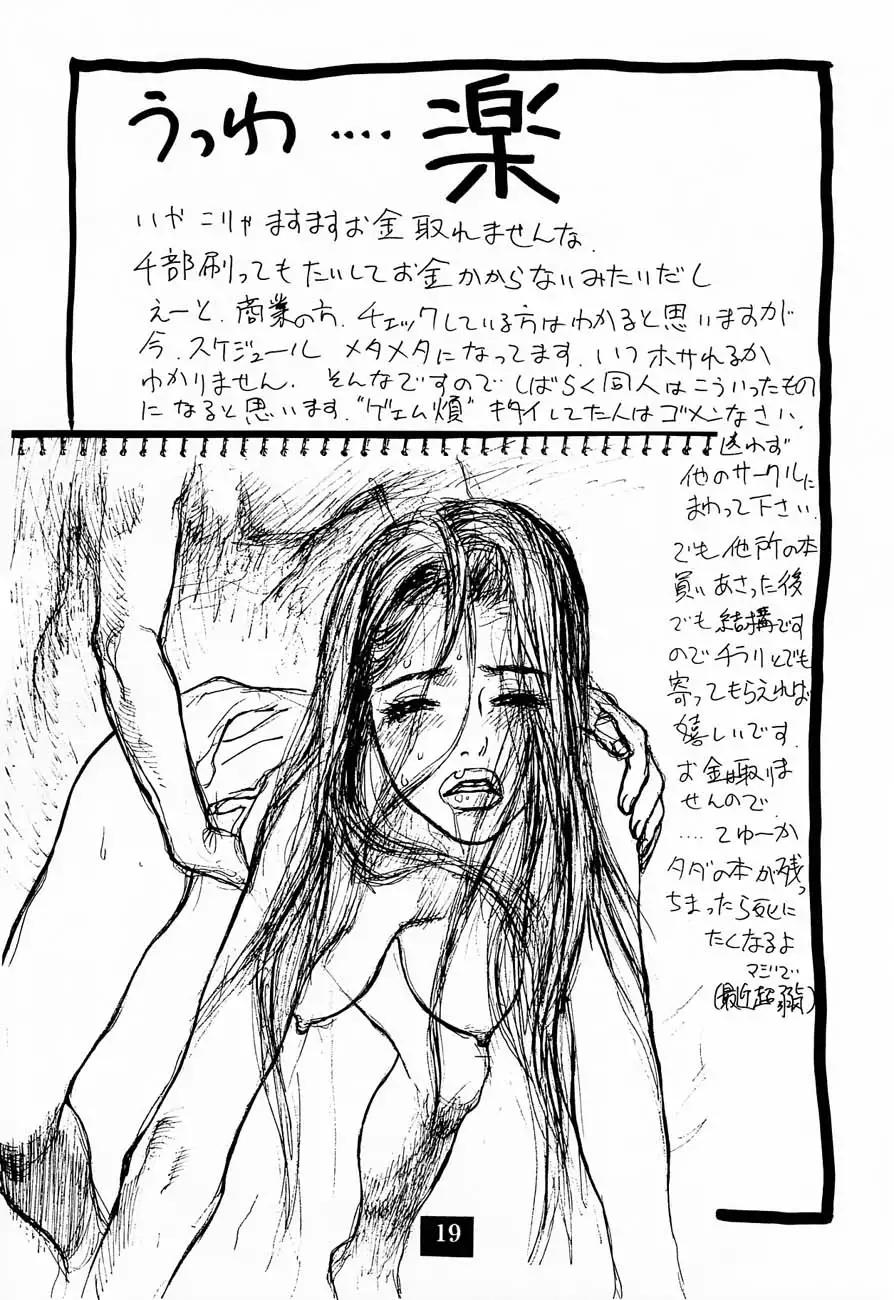 うっわ‥‥楽
いや こりゃ ますますお金取れませんな.
千部刷ってもたいしてお金かからないみたいだし
えーと.商業の方.チェックしている方はわかると思いますが
今.スケジュール メタメタになってます.いつホサれるか
わかりません. そんなですので しばらく同人はこういったもの
になると思います."ゲェム煩" キタイしてた人はゴメンなさい.
迷わず
他のサークルに
まわって下さい.
でも他所の本
買いあさった後
でも結構です
のでチラリとでも
寄ってもらえれば
嬉しいです.
お金は取りま
せんので.
‥‥てゆーか
タダの本が残っ
ちまったら死に
たくなるよ
マジで
(最近超弱)
19